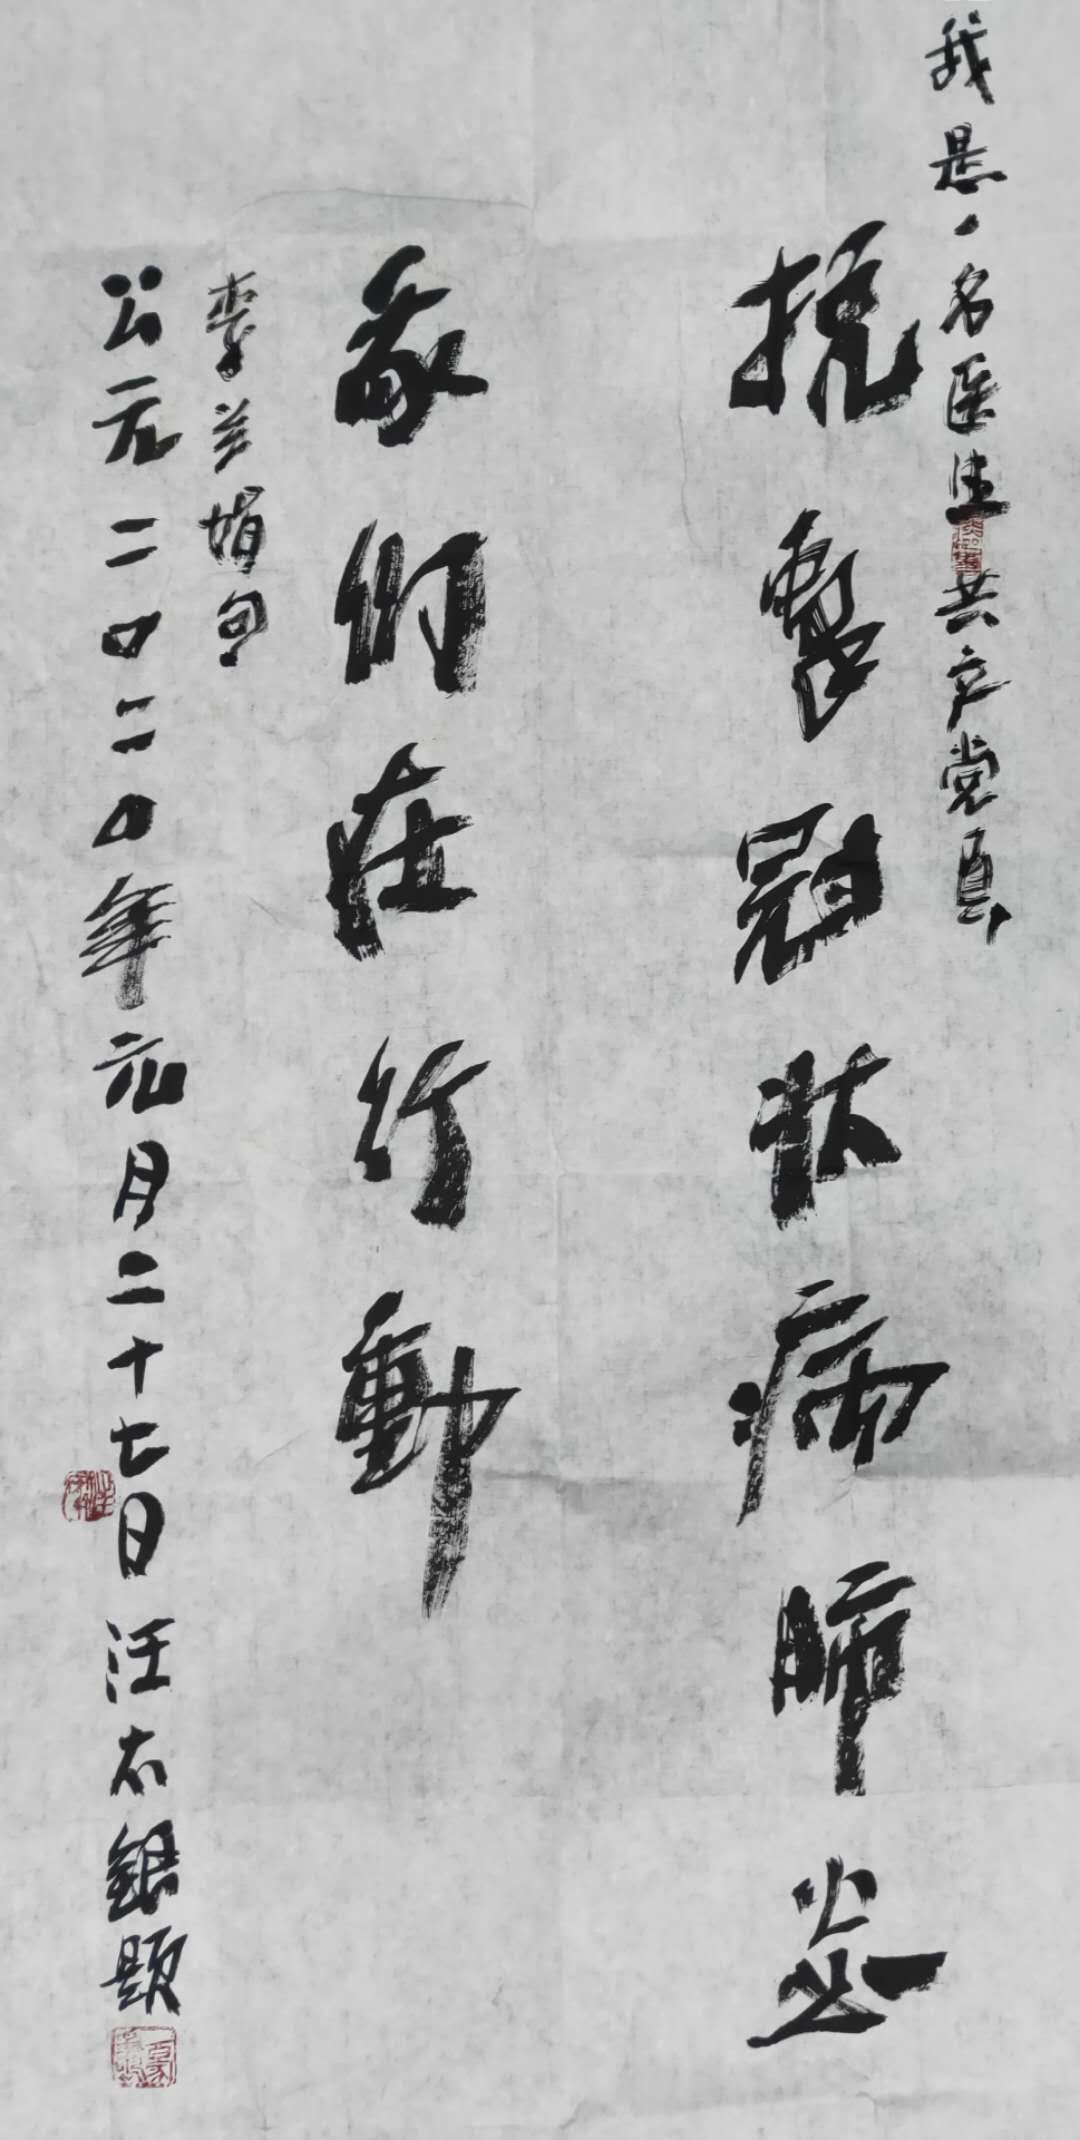 我是一名医生共产党员
抗击冠状病肺炎
我们在行動
李兰娟句
公元二〇二〇年元月二十七日汪太銀题